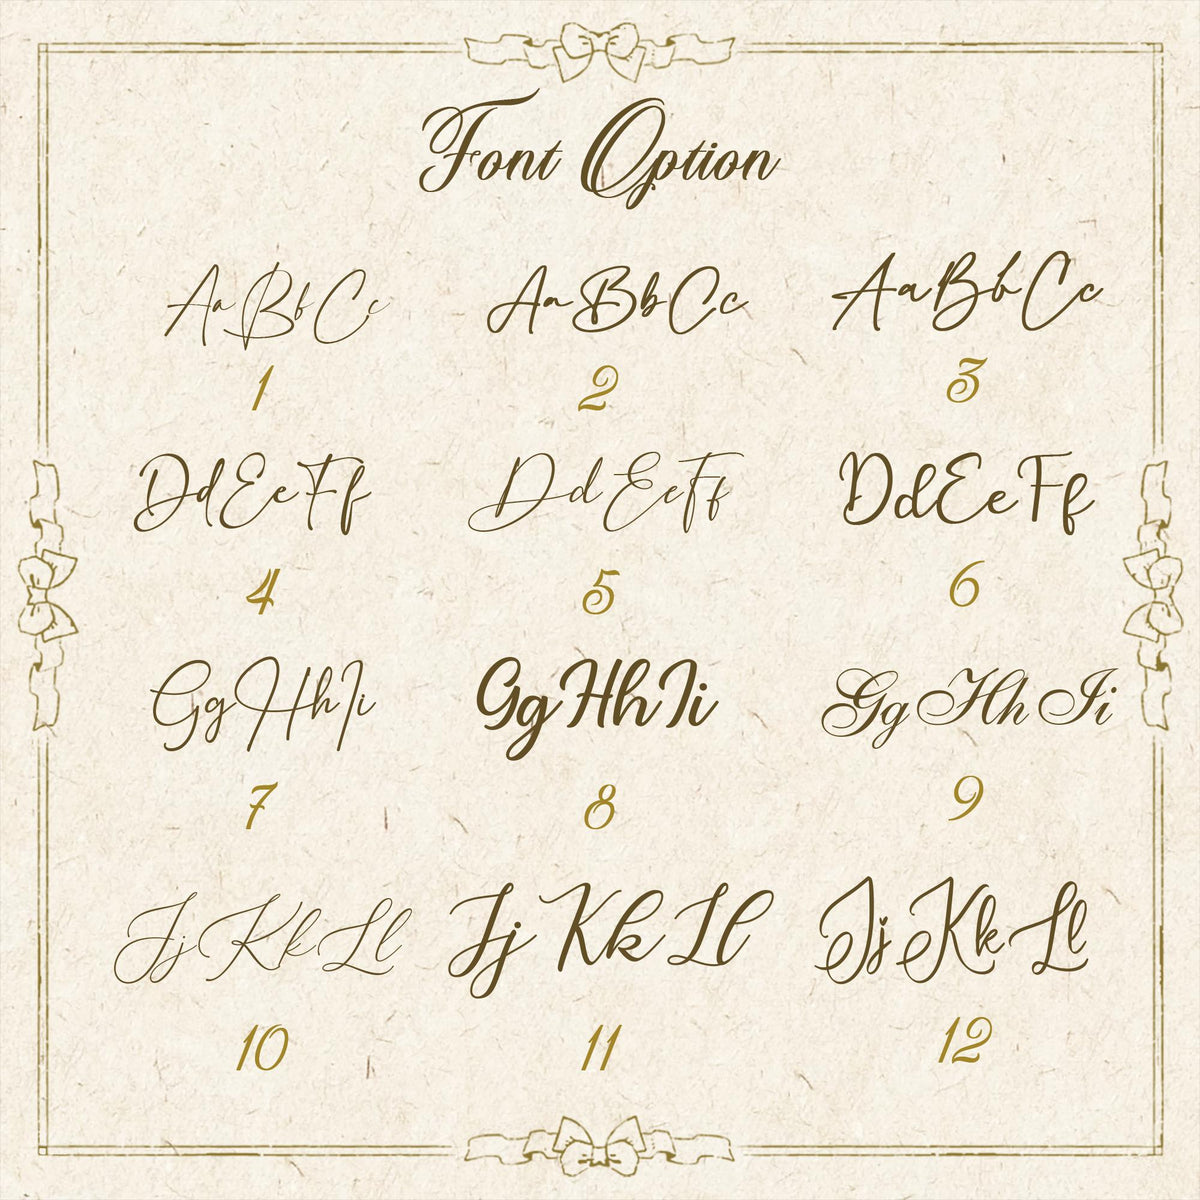 Font Option
AaBbCc AaBbCc AaBbCc
1 2 3
DdEeFf DdEeFf DdEeFf
4 5 6
GgHhIi GgHhIi GgHhIi
7 8 9
JjKkLl JjKkLl JjKkLl
10 11 12